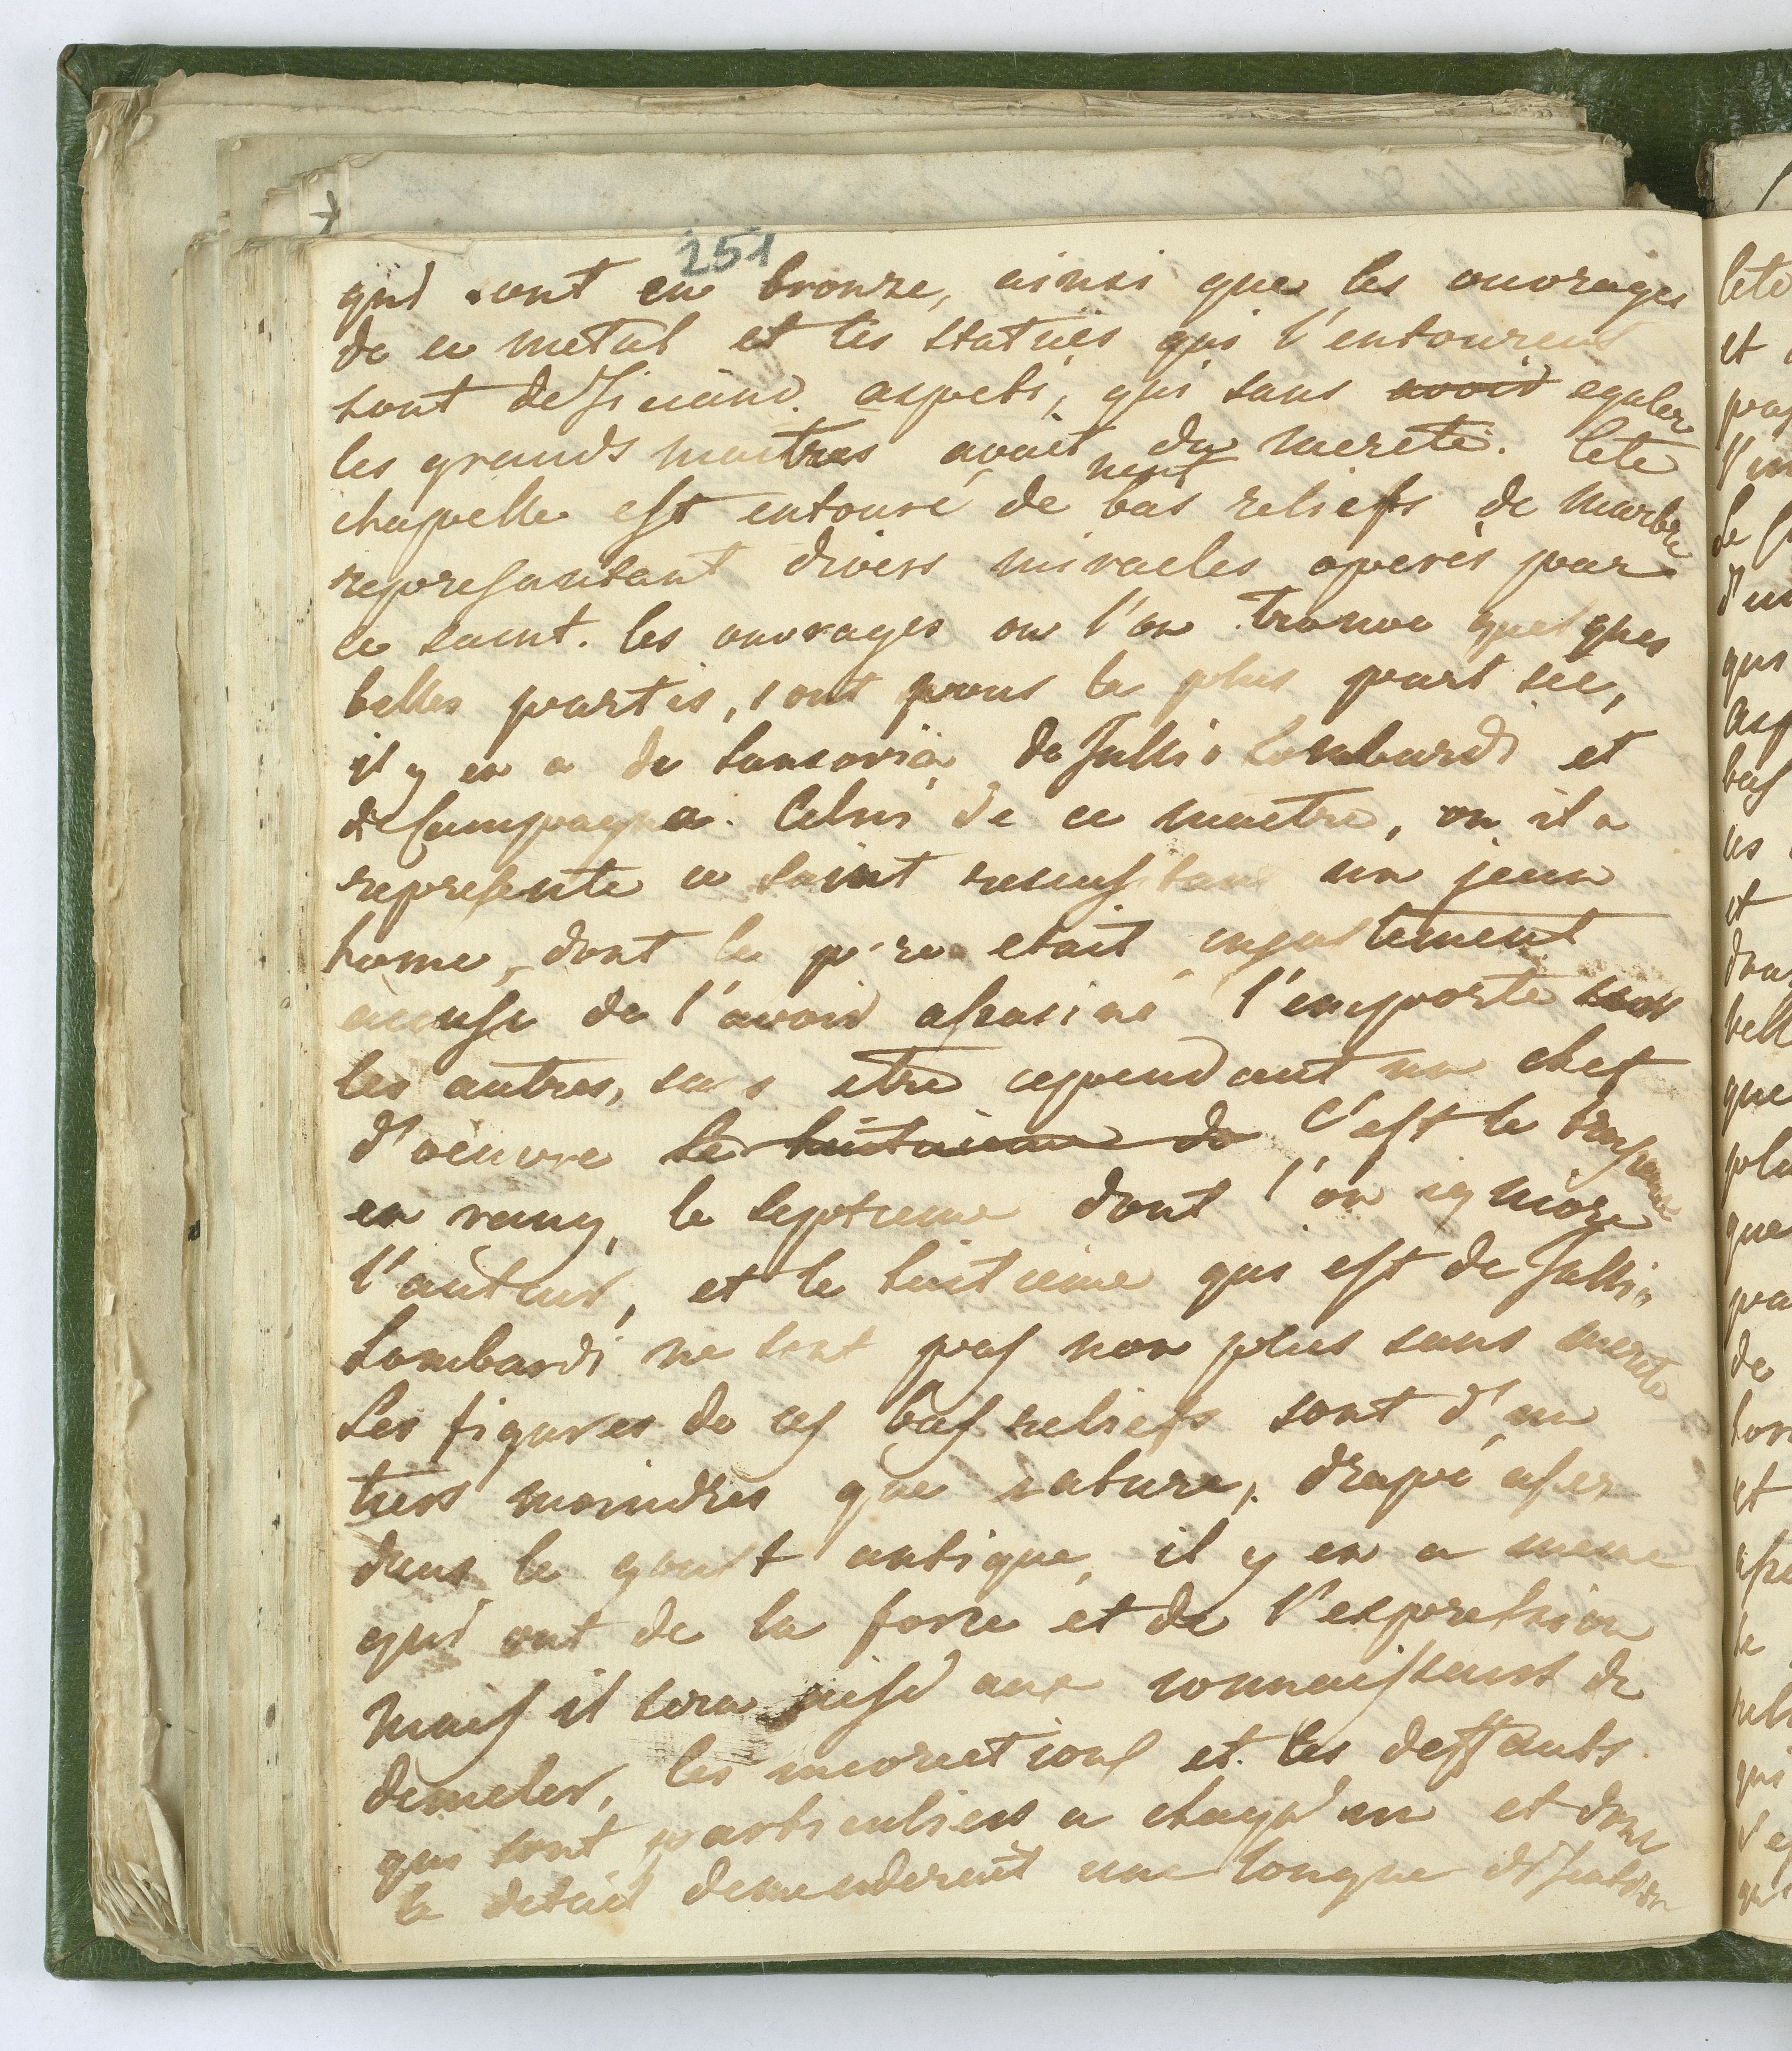 251
qui sont en bronze, ainsi que les ouvrages
de ce metal et les statues qui l'entourent
sont de Ticiano aspeti, qui sans avoir egaler
les grands maitres avait du merete. Cete
chapelle est entouré de neuf bas reliefs de marbre
represantant divers miracles operés par
ce saint. les ouvrages ou l'on trouve quelques
belles partis, sont pour la plus part sec,
il y en a de Sansovia, de Jullio Lombardi et
de Campagna. Celui de ce maitre, ou il a
represente ce saint resusitant un jeun
home, dont le pere etait injustement
accuse de l'avoir assasiné l'emporte sur
les autres, sans etre cependant un chef
d'oeuvre le huitaieme de C'est le troisieme
en rang, le septieme dont l'on igniore
l'auteur, et le huitieme qui est de Jullio
Lombardi ne sont pas non plus sans merite
Les figures de ces bas reliefs sont d'un
tiers moindres que nature, drapé assez
dans le goust antique, il y en a meme
qui ont de la force et de l'expression
mais il sera aisé aux connaissant de
demeler, les incorections et les deffauts
qui sont particuliers a chaqu'un et dont
le detail demenderait une longue
lete
et